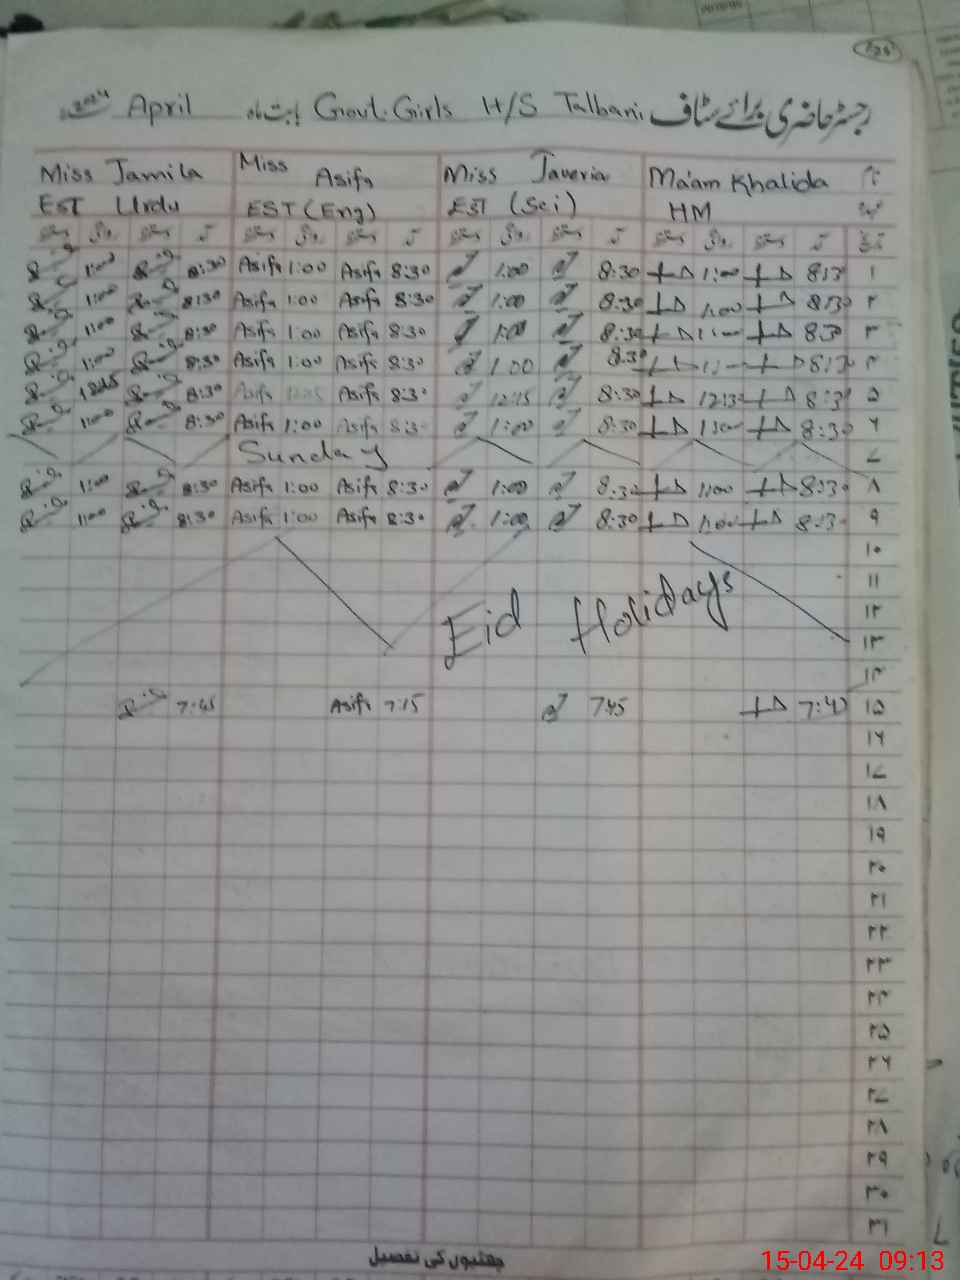 126
رجسٹر حاضری برائے سٹاف Govt. Girls H/S Talbani بابت ماہ April 2024
Miss Jamila Miss Asifa Miss Javeria Ma'am Khalida نام
EST Urdu EST (Eng) EST (Sci) HM عہدہ
دستخط روانگی دستخط آمد دستخط روانگی دستخط آمد دستخط روانگی دستخط آمد دستخط روانگی دستخط آمد تاریخ
1:00 8:30 Asifa 1:00 Asifa 8:30 1:00 8:30 1:00 8:30 ۱
1:00 8:30 Asifa 1:00 Asifa 8:30 1:00 8:30 1:00 8:30 ۲
1:00 8:30 Asifa 1:00 Asifa 8:30 1:00 8:30 1:00 8:30 ۳
1:00 8:30 Asifa 1:00 Asifa 8:30 1:00 8:30 8:30 ۴
8:30 Asifa 12:15 Asifa 8:30 12:15 8:30 12:30 8:30 ۵
1:00 8:30 Asifa 1:00 Asifa 8:30 1:00 8:30 1:00 8:30 ۶
Sunday ۷
1:00 8:30 Asifa 1:00 Asifa 8:30 1:00 8:30 1:00 8:30 ۸
1:00 8:30 Asifa 1:00 Asifa 8:30 1:00 8:30 1:00 8:30 ۹
۱۰
۱۱
Eid Holidays ۱۲
۱۳
۱۴
7:45 Asifa 7:15 7:45 7:40 ۱۵
۱۶
۱۷
۱۸
۱۹
۲۰
۲۱
۲۲
۲۳
۲۴
۲۵
۲۶
۲۷
۲۸
۲۹
۳۰
۳۱
چھٹیوں کی تفصیل
15-04-24 09:13